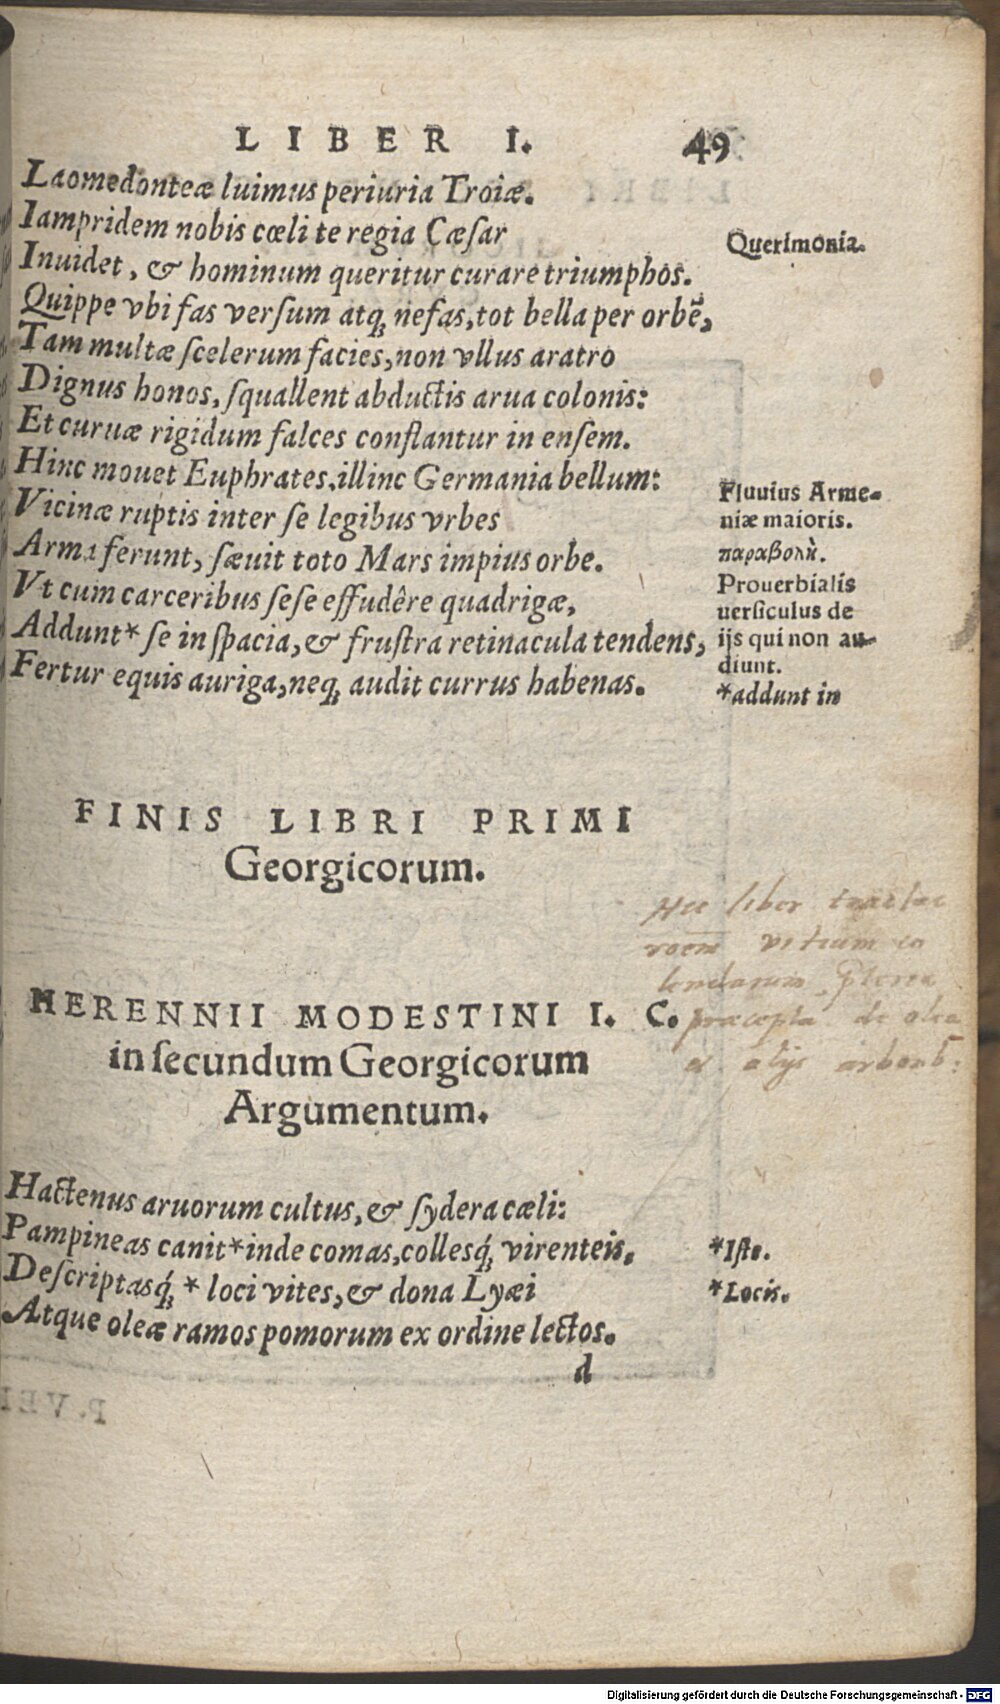 LIBER I. 49
Laomedonteæ luimus periuria Troiæ.
Iampridem nobis cœli te regia Cæſar
Querimonia.
Inuidet, & hominum queritur curare triumphos.
Quippe vbi fas verſum atq; nefas, tot bella per orbẽ,
Tam multæ ſcelerum facies, non vllus aratro
Dignus honos, ſquallent abductis arua colonis:
Et curuæ rigidum falces conflantur in enſem.
Hinc mouet Euphrates, illinc Germania bellum:
Fluuius Arme-
niæ maioris.
Vicinæ ruptis inter ſe legibus vrbes
Arma ferunt, ſæuit toto Mars impius orbe.
παραβολὴ.
Vt cum carceribus ſeſe effudêre quadrigæ,
Prouerbialis
uerſiculus de
ijs qui non au-
diunt.
Addunt* ſe in ſpacia, & fruſtra retinacula tendens,
Fertur equis auriga, neq; audit currus habenas.
*addunt in
FINIS LIBRI PRIMI
Georgicorum.
Hic liber
vitium
præcepta de
et alijs
HERENNII MODESTINI I. C.
in ſecundum Georgicorum
Argumentum.
Hactenus aruorum cultus, & ſydera cæli:
Pampineas canit* inde comas, colleſq́; virenteis,
*Iſte.
Deſcriptaſq́; * loci vites, & dona Lyæi
*Locis.
Atque oleæ ramos pomorum ex ordine lectos.
d
Digitalisierung gefördert durch die Deutsche Forschungsgemeinschaft - DFG